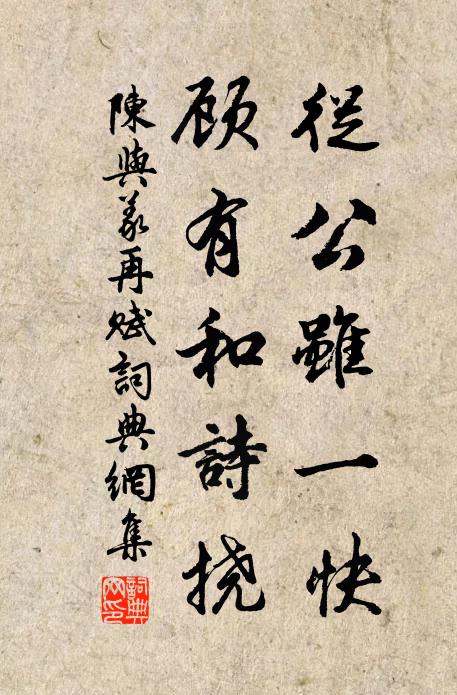 從公雖一快
顧有和詩撓
陳與義再賦詞典網集
詞典網印